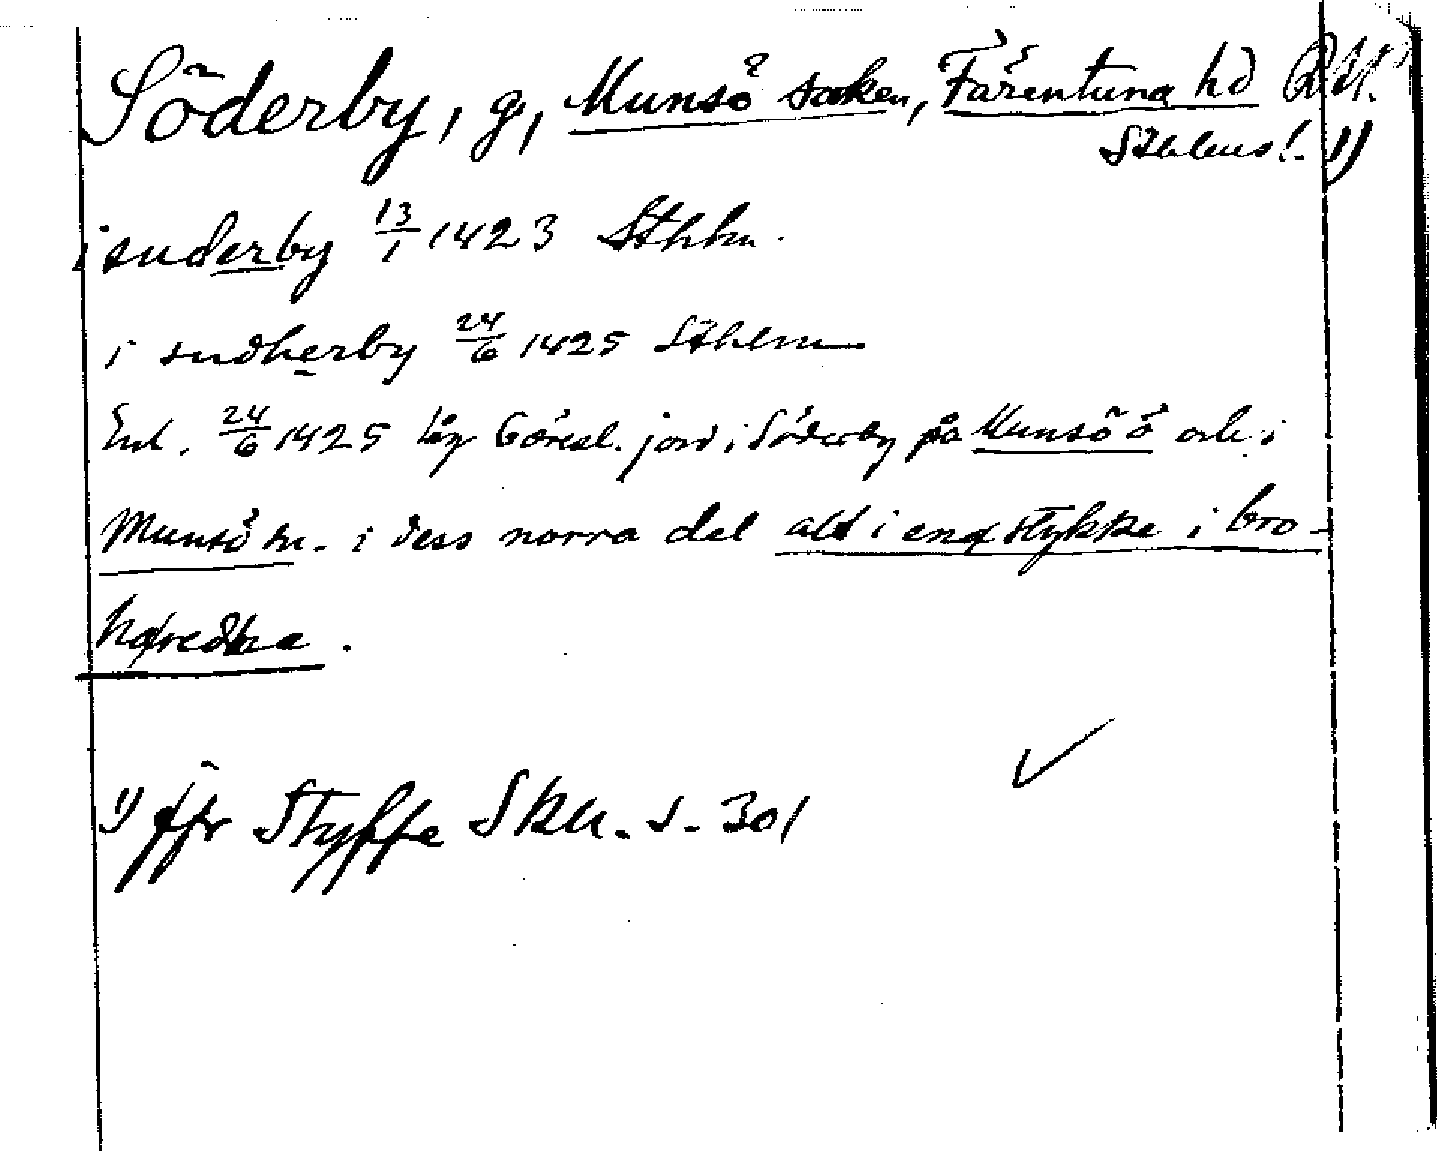 Söderby, g, Munsö socken, Färentuna hd
Sthlms l. 1)
i suderby 13/1 1423 Sthlm.
i sudherby 24/6 1425 Sthlm
Enl. 24/6 1425 låg jord i Söderby på Munsö ö och i
Munsö sn. i dess norra del alt i eno stykke i bro-
hæredhe.
1) jfr Styffe Sku. s. 301